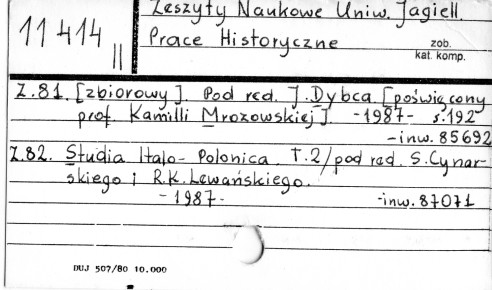 Zeszyty Naukowe Uniw. Jagiell.
11414 II
Prace Historyczne
zob.
kat. komp.
Z.81. [zbiorowy]. Pod red. J. Dybca. [poświęcony
prof. Kamilli Mrozowskiej]. -1987- s.192
-inw. 85692
Z.82. Studia Italo-Polonica. T.2/pod red. S. Cynar-
skiego i R.K. Lewańskiego.
-1987-
-inw. 87071
DUJ 507/80 10.000